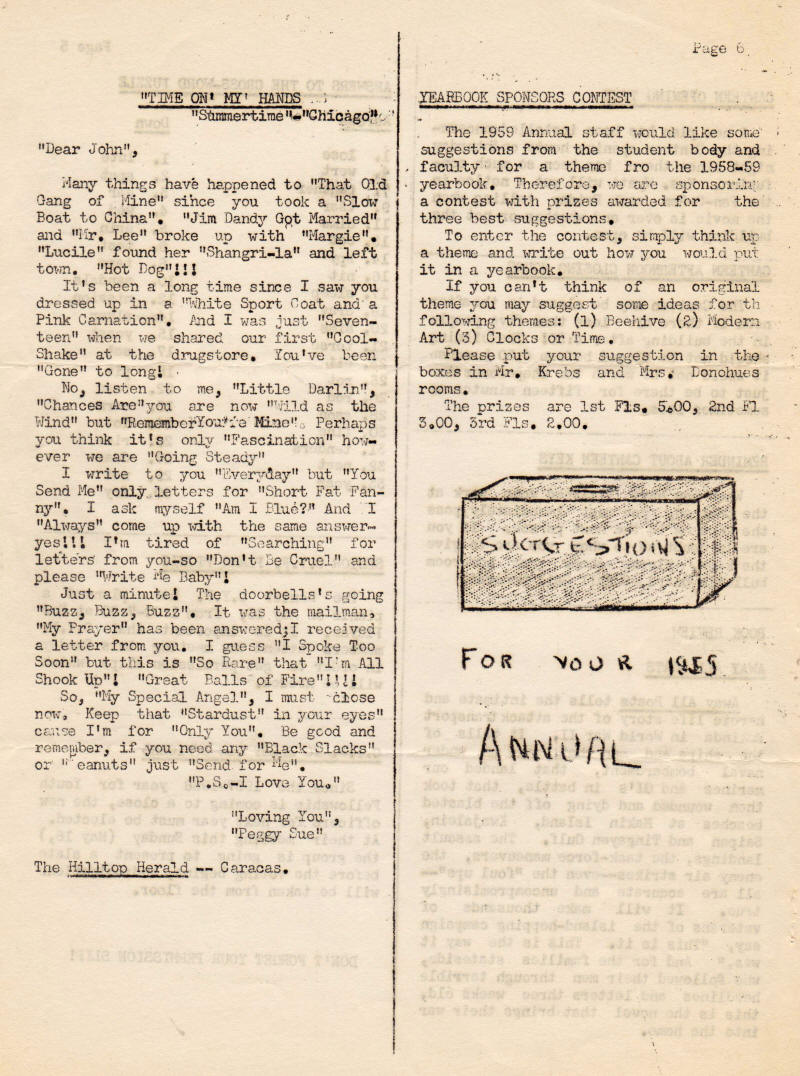 Page 6
"TIME ON' MY' HANDS
"Summertime"-"Chicago"
"Dear John",
Many things have happened to "That Old
Gang of Mine" since you took a "Slow
Boat to China". "Jim Dandy Got Married"
and "Mr. Lee" broke up with "Margie".
"Lucile" found her "Shangri-la" and left
town. "Hot Dog"!!!
It's been a long time since I saw you
dressed up in a "White Sport Coat and a
Pink Carnation". And I was just "Seven-
teen" when we shared our first "Cool-
Shake" at the drugstore. You've been
"Gone" to long!
No, listen to me, "Little Darlin",
"Chances Are"you are now "Wild as the
Wind" but "RememberYou're Mine". Perhaps
you think it's only "Fascination" how-
ever we are "Going Steady"
I write to you "Everyday" but "You
Send Me" only letters for "Short Fat Fan-
ny". I ask myself "Am I Blue?" And I
"Always" come up with the same answer-
yes!!! I'm tired of "Searching" for
letters from you-so "Don't Be Cruel" and
please "Write Me Baby"!
Just a minute! The doorbells's going
"Buzz, Buzz, Buzz". It was the mailman,
"My Prayer" has been answered;I received
a letter from you. I guess "I Spoke Too
Soon" but this is "So Rare" that "I'm All
Shook Up"! "Great Balls of Fire"!!!!
So, "My Special Angel", I must close
now. Keep that "Stardust" in your eyes"
cause I'm for "Only You". Be good and
remember, if you need any "Black Slacks"
or "Peanuts" just "Send for Me".
"P.S.-I Love You."
"Loving You",
"Peggy Sue"
The Hilltop Herald -- Caracas.
YEARBOOK SPONSORS CONTEST
The 1959 Annual staff would like some
suggestions from the student body and
faculty for a theme fro the 1958-59
yearbook. Therefore, we are sponsoring
a contest with prizes awarded for the
three best suggestions.
To enter the contest, simply think up
a theme and write out how you would put
it in a yearbook.
If you can't think of an original
theme you may suggest some ideas for th
following themes: (1) Beehive (2) Modern
Art (3) Clocks or Time.
Please put your suggestion in the
boxes in Mr. Krebs and Mrs. Donohues
rooms.
The prizes are 1st Fls. 5.00, 2nd Fl
3.00, 3rd Fls. 2.00.
SUGGESTIONS
FOR YOUR
ANNUAL